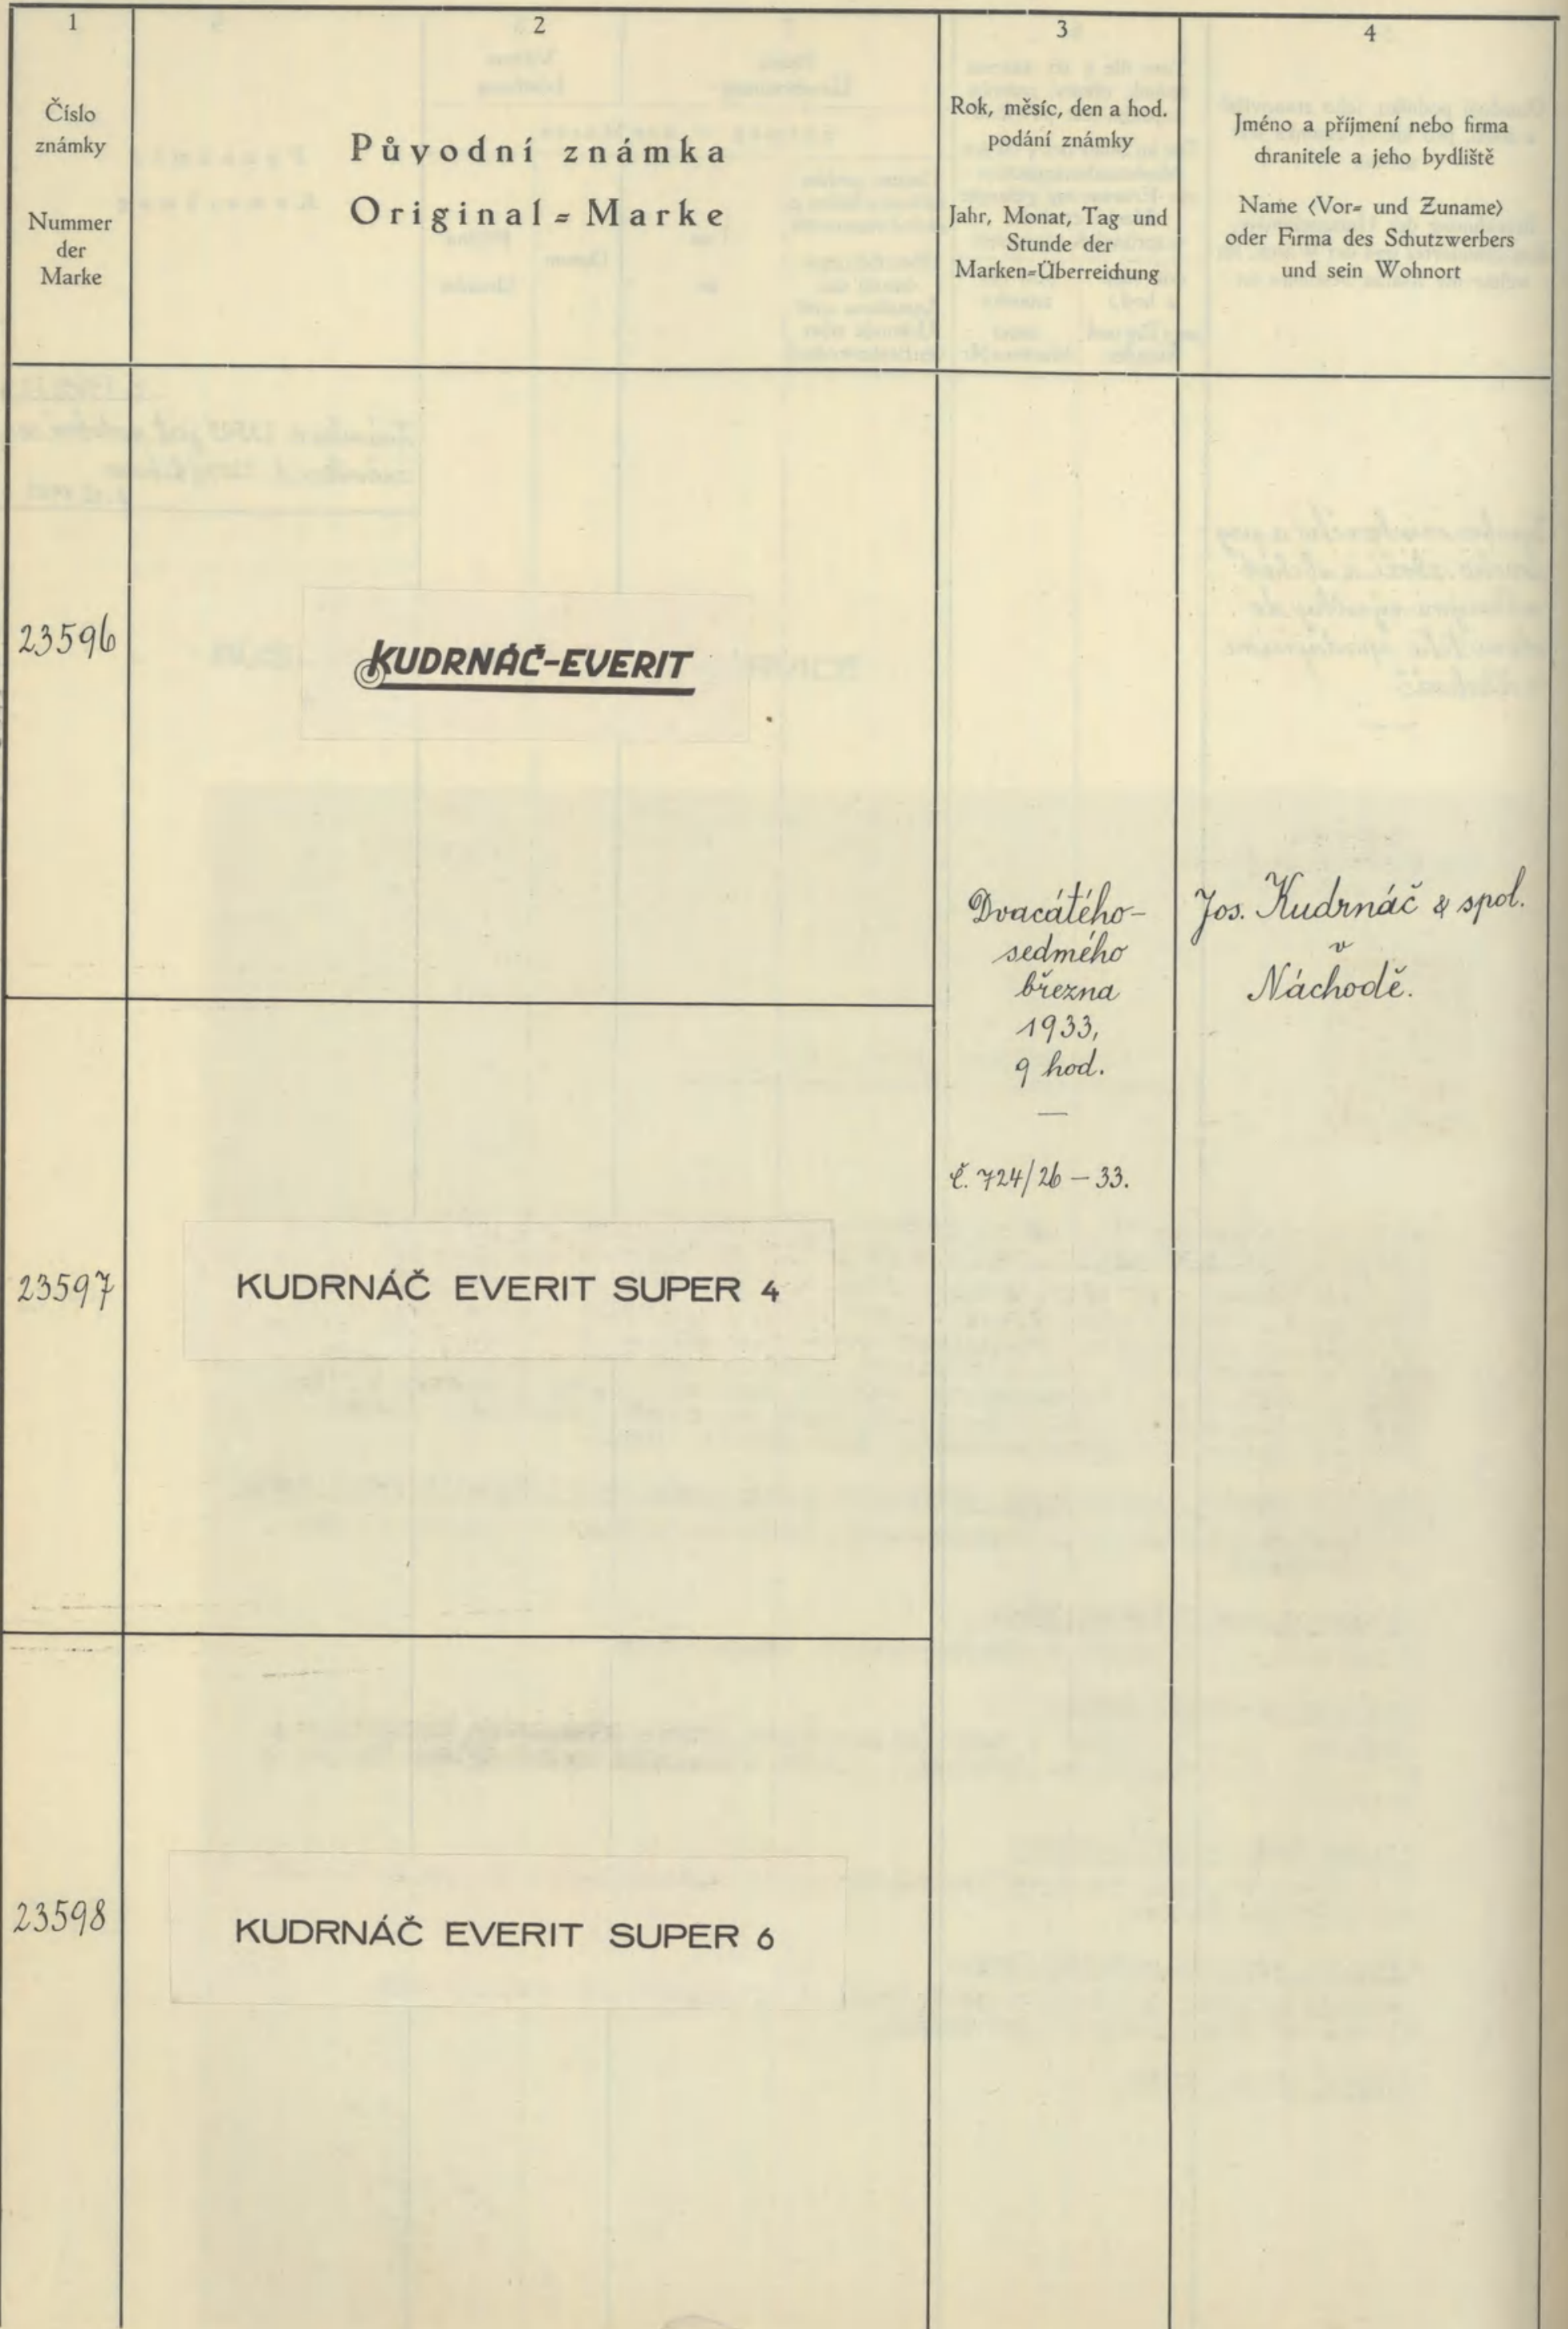 1
Číslo
známky
Nummer
der
Marke
2
Původní známka
Original=Marke
3
Rok, měsíc, den a hod.
podání známky
Jahr, Monat, Tag und
Stunde der
Marken=Überreichung
4
Jméno a příjmení nebo firma
chranitele a jeho bydliště
Name (Vor= und Zuname)
oder Firma des Schutzwerbers
und sein Wohnort
23596
KUDRNÁČ-EVERIT
Dvacátého-
sedmého
března
1933,
9 hod.
—
č. 724/26 – 33.
Jos. Kudrnáč & spol.
v
Náchodě.
23597
KUDRNÁČ EVERIT SUPER 4
23598
KUDRNÁČ EVERIT SUPER 6